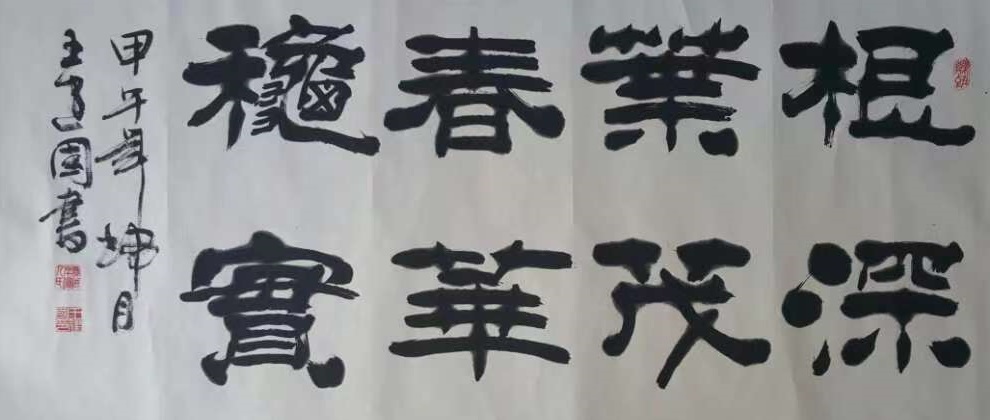 根深
葉茂
春華
龝實
甲午年坤月
王国書